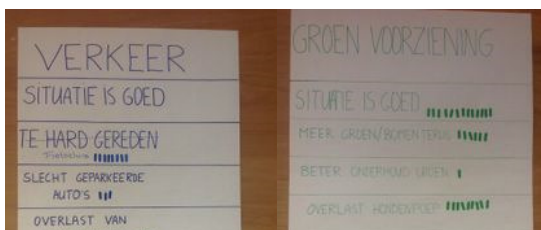 VERKEER
SITUATIE IS GOED
TE HARD GEREDEN
SLECHT GEPARKEERDE
AUTO'S
OVERLAST VAN
GROEN VOORZIENING
SITUATIE IS GOED
MEER GROEN/BOMEN TERUG
BETER ONDERHOUD GROEN
OVERLAST HONDENPOEP